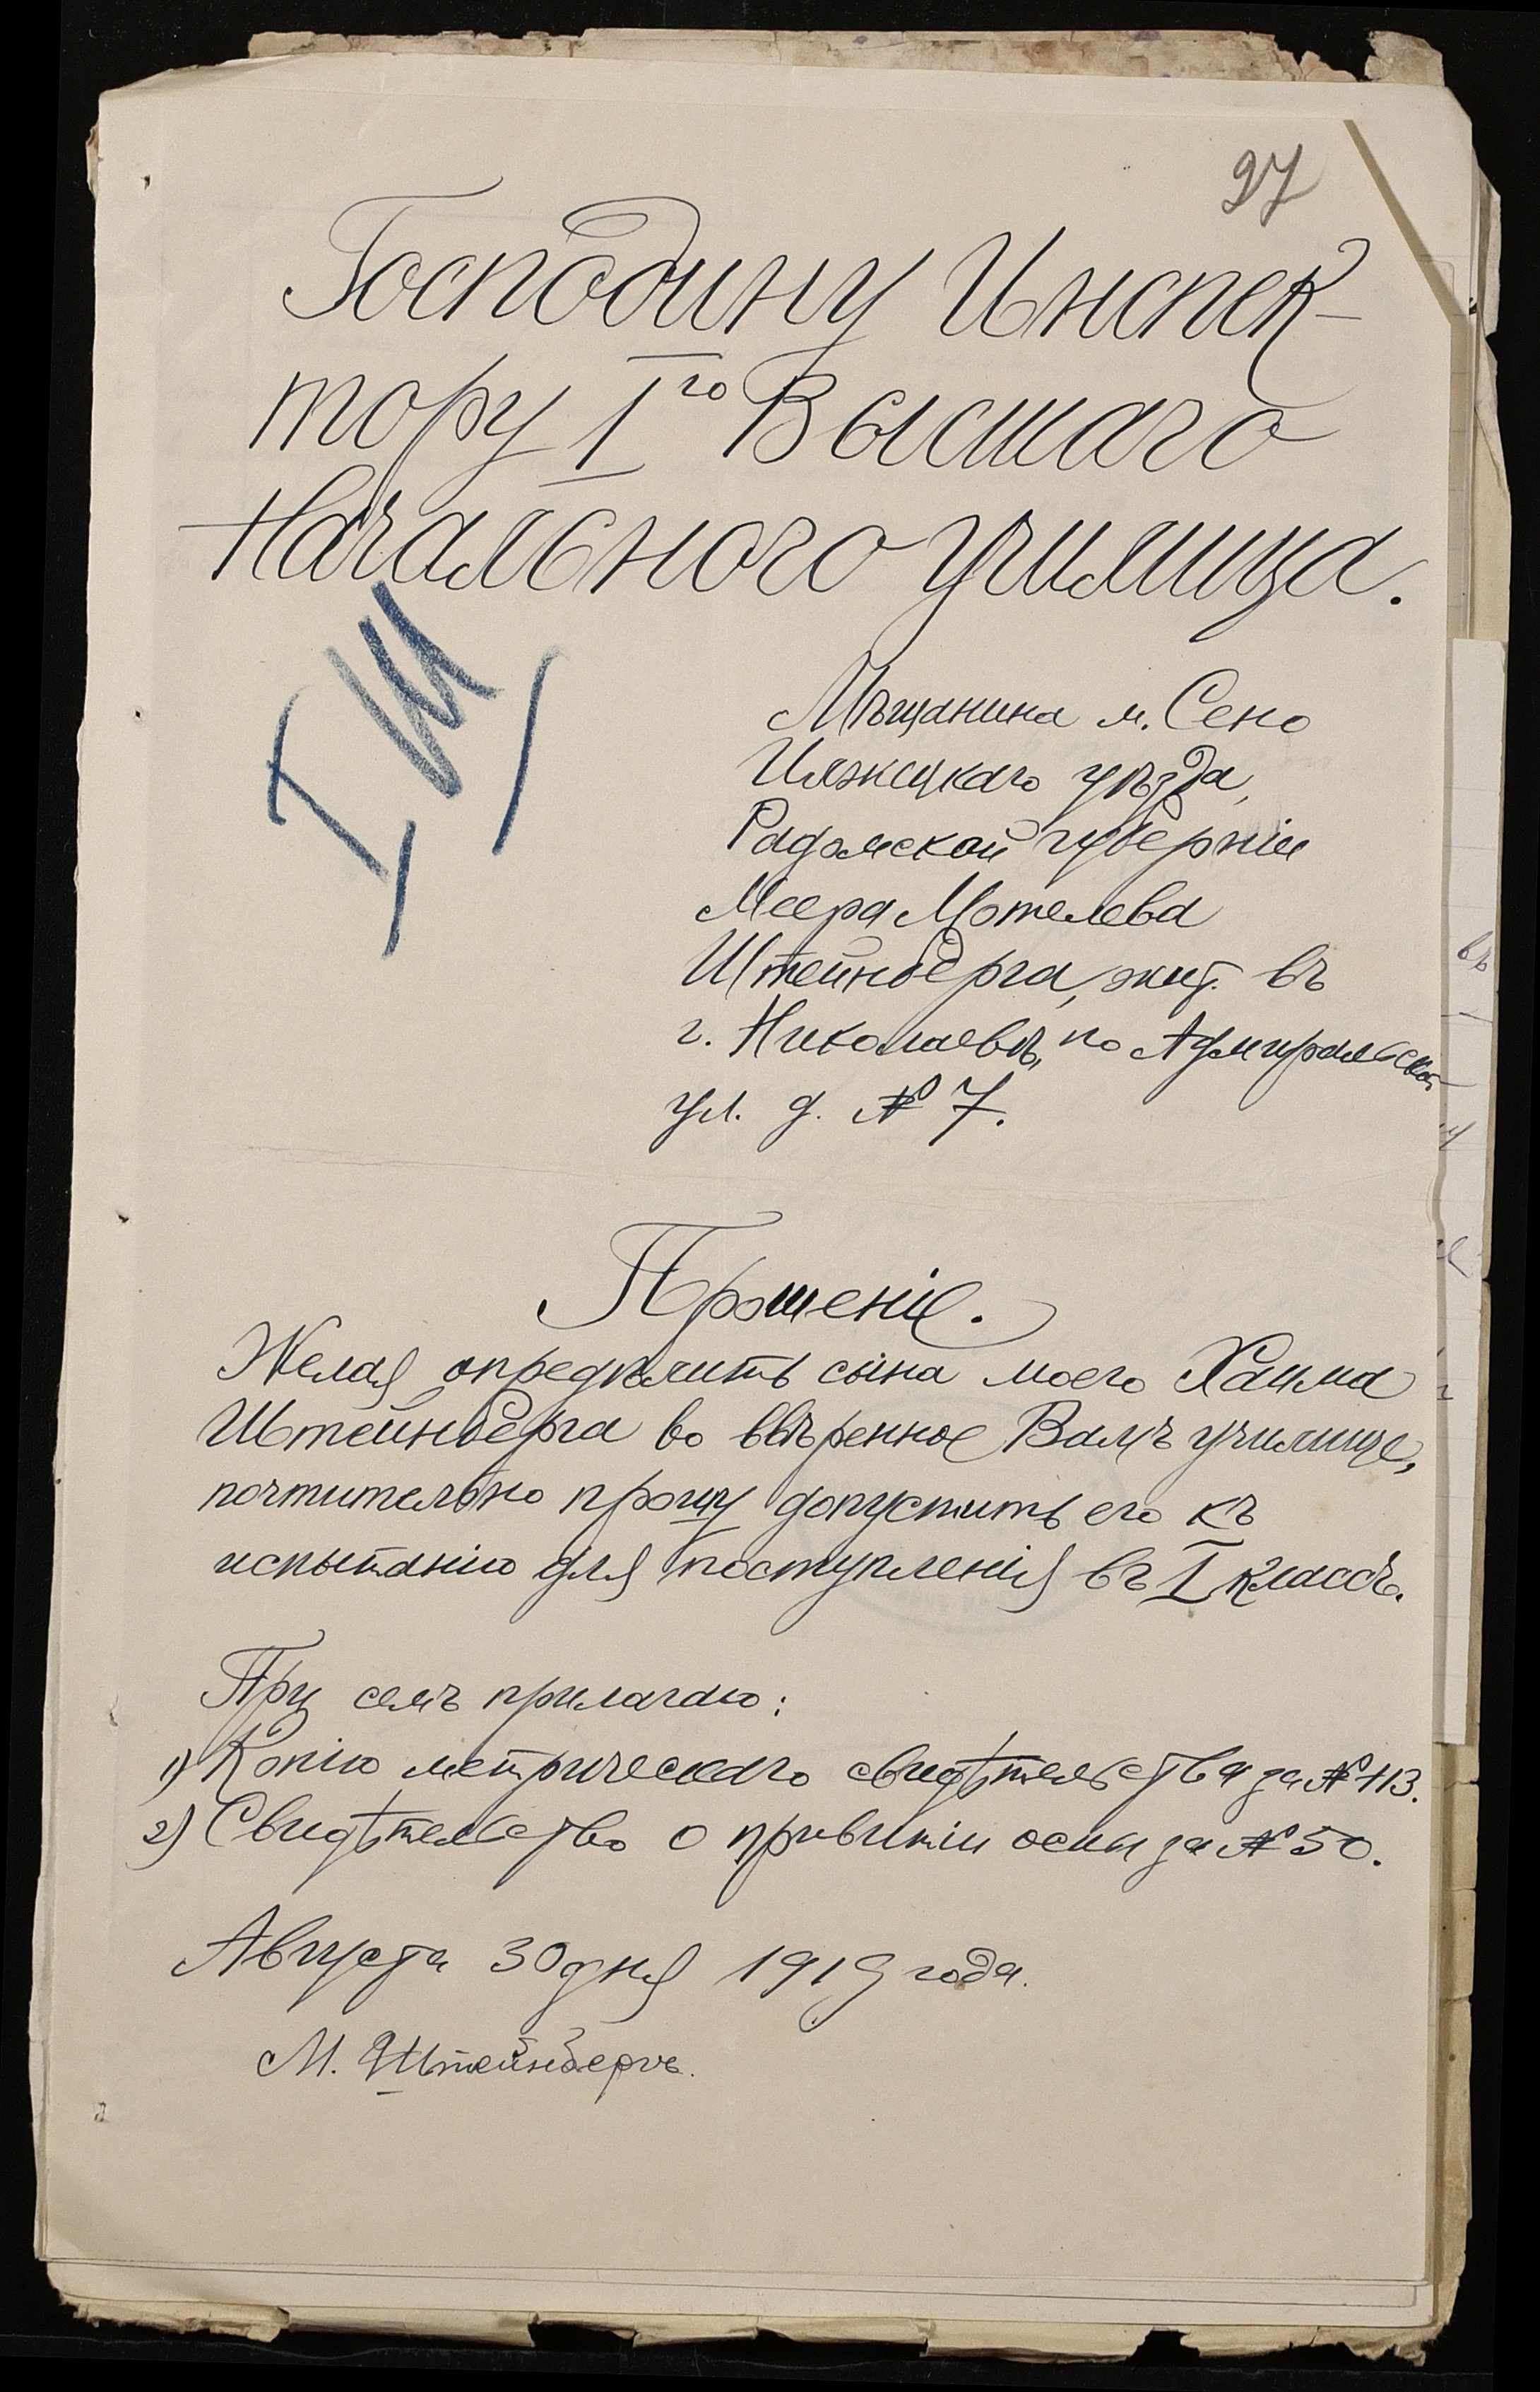 27
Господину Инспек-
тору I го Высшаго
Начального училища.
Мѣщанина м. Сено
Илжецкаго уѣзда,
Радомской губерніи
Меера Мотелева
Штейнберга, жит. въ
г. Николаевѣ, по Адмиральской
ул. д. № 7.
Прошеніе.
Желая опредѣлить сына моего Хаима
Штейнберга во ввѣренное Вамъ училище,
почтительно прошу допустить его къ
испытанію для поступленія въ I классъ.
При семъ прилагаю:
1) Копію метрическаго свидѣтельства за № 113.
2) Свидѣтельство о привитіи оспы за № 50.
Августа 30 дня 1919 года.
М. Штейнбергъ.